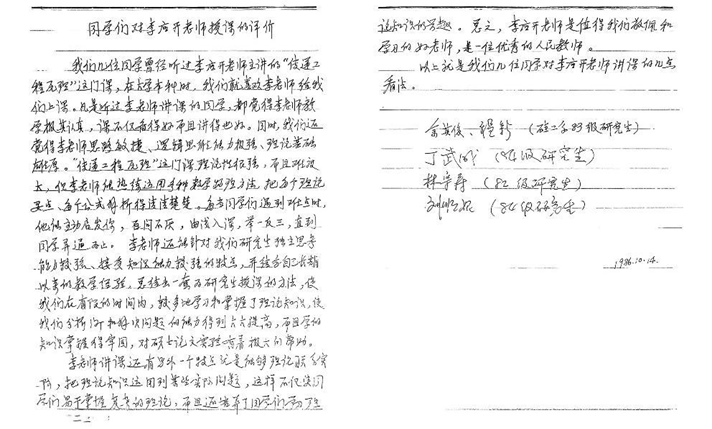 同学们对李应开老师授课的评价
我们几位同学曾经听过李应开老师主讲的"
程 "这门课,在上学本科时,我们就喜欢李老师给我
们上课。凡是听过李老师讲课的同学,都觉得李老师教
学极其认真,课不仅备得好而且讲得也好。同时,我们还
觉得李老师思路敏捷、逻辑思维能力极强、理论基础
雄厚。" 程 "这门课理论性很强,而且难度
大,但李老师能熟练运用多种数学推理方法,把每个理论
要点、每个公式剖析得清清楚楚。每当同学们遇到难点时,
他能主动启发你,百问不厌,由浅入深,举一反三,直到
同学弄通为止。李老师还能针对我们研究生独立思考
能力较强、接受知识能力较强的特点,并结合自己长期
以来的教学经验,总结出一套为研究生授课的方法,使
我们在有限的时间内,较多地学习和掌握了理论知识,使
我们分析 和解决问题的能力得到大大提高,而且学的
知识掌握得牢固,对硕士论文实验有着极大的帮助。
李老师讲课还有另外一个特点就是能够理论联系实
际,把理论知识运用到某些实际问题,这样不仅使同
学们易于掌握 的理论,而且还 了同学们学习理
论知识的兴趣。总之,李应开老师是值得我们敬佩和
学习的好老师,是一位优秀的人民教师。
以上就是我们几位同学对李应开老师讲课的几点
看法。
(硕 83级研究生)
丁武 (84级研究生)
林 寿 (82级研究生)
刘 (84级研究生)
1986.10.14.